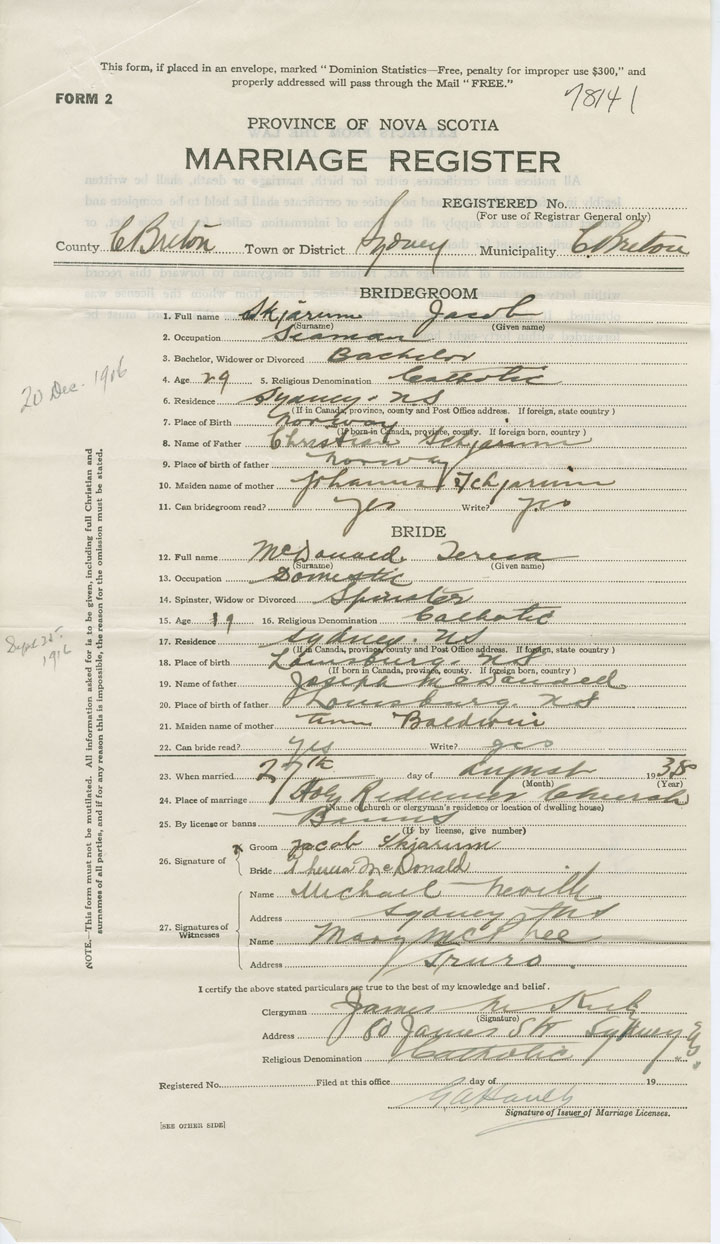 This form, if placed in an envelope, marked "Dominion Statistics—Free, penalty for improper use $300," and
properly addressed will pass through the Mail "FREE."
FORM 2
78141
PROVINCE OF NOVA SCOTIA
MARRIAGE REGISTER
REGISTERED No.
(For use of Registrar General only)
County C. Breton Town or District Sydney Municipality C. Breton
BRIDEGROOM
1. Full name Skjarum Jacob
(Surname) (Given name)
2. Occupation Seaman
3. Bachelor, Widower or Divorced Bachelor
20 Dec. 1916
4. Age 29 5. Religious Denomination Catholic
6. Residence Sydney. N.S
(If in Canada, province, county and Post Office address. If foreign, state country)
7. Place of Birth Norway
(If born in Canada, province, county. If foreign born, country)
8. Name of Father Christian Schjarum
9. Place of birth of father Norway
10. Maiden name of mother Johanna Schjarum
11. Can bridegroom read? yes Write? yes
BRIDE
12. Full name McDonald. Teresa
(Surname) (Given name)
13. Occupation Domestic
14. Spinster, Widow or Divorced Spinster
15. Age 19 16. Religious Denomination Catholic
17. Residence Sydney. NS
(If in Canada, province, county and Post Office address. If foreign, state country)
Sept 25. 1916
18. Place of birth Louisburg. NS
(If born in Canada, province, county. If foreign born, country)
19. Name of father Joseph McDonald
20. Place of birth of father Louisburg. NS
21. Maiden name of mother Ann Baldwin
22. Can bride read? yes Write? yes
23. When married 27th day of August 1938
(Month) (Year)
24. Place of marriage Holy Redeemer Church
(Name of church or clergyman's residence or location of dwelling house)
25. By license or banns Banns
(If by license, give number)
26. Signature of
x Groom Jacob Skjarum
Bride Theresa McDonald
27. Signatures of Witnesses
Name Michael Neville
Address Sydney NS
Name Mary McPhee
Address Truro.
I certify the above stated particulars are true to the best of my knowledge and belief.
Clergyman James M
(Signature)
Address 80 James St Sydney N.S.
Religious Denomination Catholic
Registered No. Filed at this office day of 19
Signature of Issuer of Marriage Licenses.
[SEE OTHER SIDE]
NOTE.—This form must not be mutilated. All information asked for is to be given, including full Christian and
surnames of all parties, and if for any reason this is impossible, the reason for the omission must be stated.